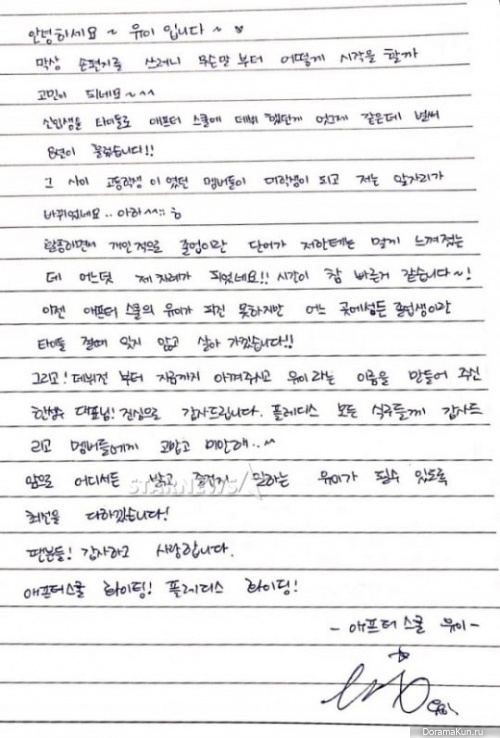 안녕하세요~ 유이 입니다~ ♥
막상 손편지로 쓰려니 무슨말 부터 어떻게 시작을 할까
고민이 되네요~^^
신입생을 타이틀로 애프터 스쿨에 데뷔 했던게 엊그제 같은데 벌써
8년이 흘렀습니다!!
그 사이 고등학생 이였던 멤버들이 대학생이 되고 저는 앞자리가
바뀌었네요.. 아하^^;; ㅎ
활동하면서 개인적으로 졸업이란 단어가 저한테는 멀게 느껴졌는
데 어느덧 제차례가 되었네요!! 시간이 참 빠른거 같습니다~!
이젠 애프터 스쿨의 유이가 되진 못하지만 어느 곳에서든 졸업생이란
타이틀 절대 잊지 않고 살아 가겠습니다!!
그리고! 데뷔전 부터 지금까지 아껴주시고 유이 라는 이름을 만들어 주신
한성수 대표님! 진심으로 감사드립니다. 플레디스 모든 식구들께 감사드
리고 멤버들에게 고맙고 미안해..^
앞으로 어디서든 밝고 즐겁게 일하는 유이가 될수 있도록
최선을 다하겠습니다!
팬분들! 감사하고 사랑합니다.
애프터스쿨 화이팅! 플레디스 화이팅!
- 애프터 스쿨 유이 -
STARNEWS
DoramaKun.ru